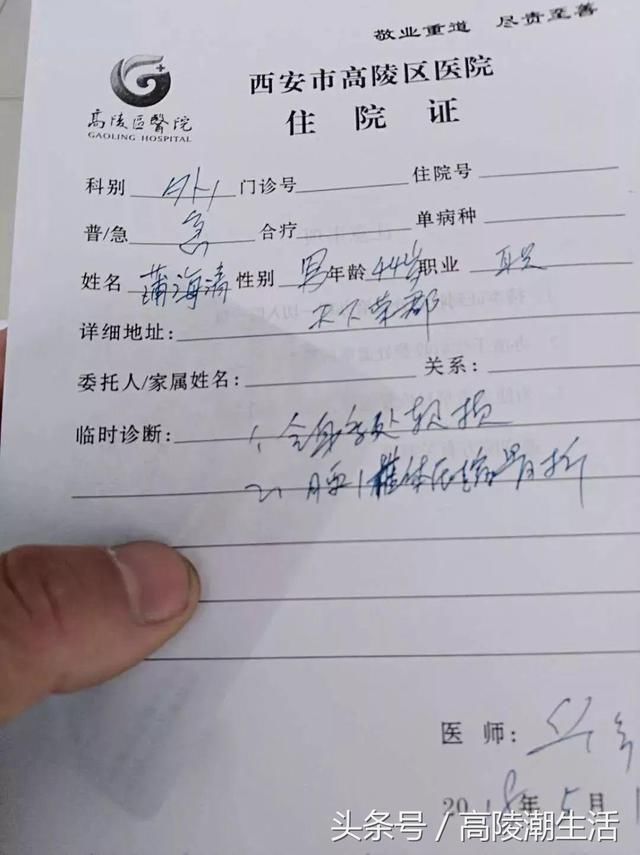 敬业重道 尽责至善
高陵區醫院
GAOLING HOSPITAL
西安市高陵区医院
住院证
科别 外1 门诊号 住院号
普/急 急 合疗 单病种
姓名 蒲海清 性别 男 年龄 44岁 职业 职员
详细地址: 天下荣郡
委托人/家属姓名: 关系:
临时诊断: 1、全身多处软损
2、腰1椎体压缩骨折
医师:
2018年5月
头条号/高陵潮生活